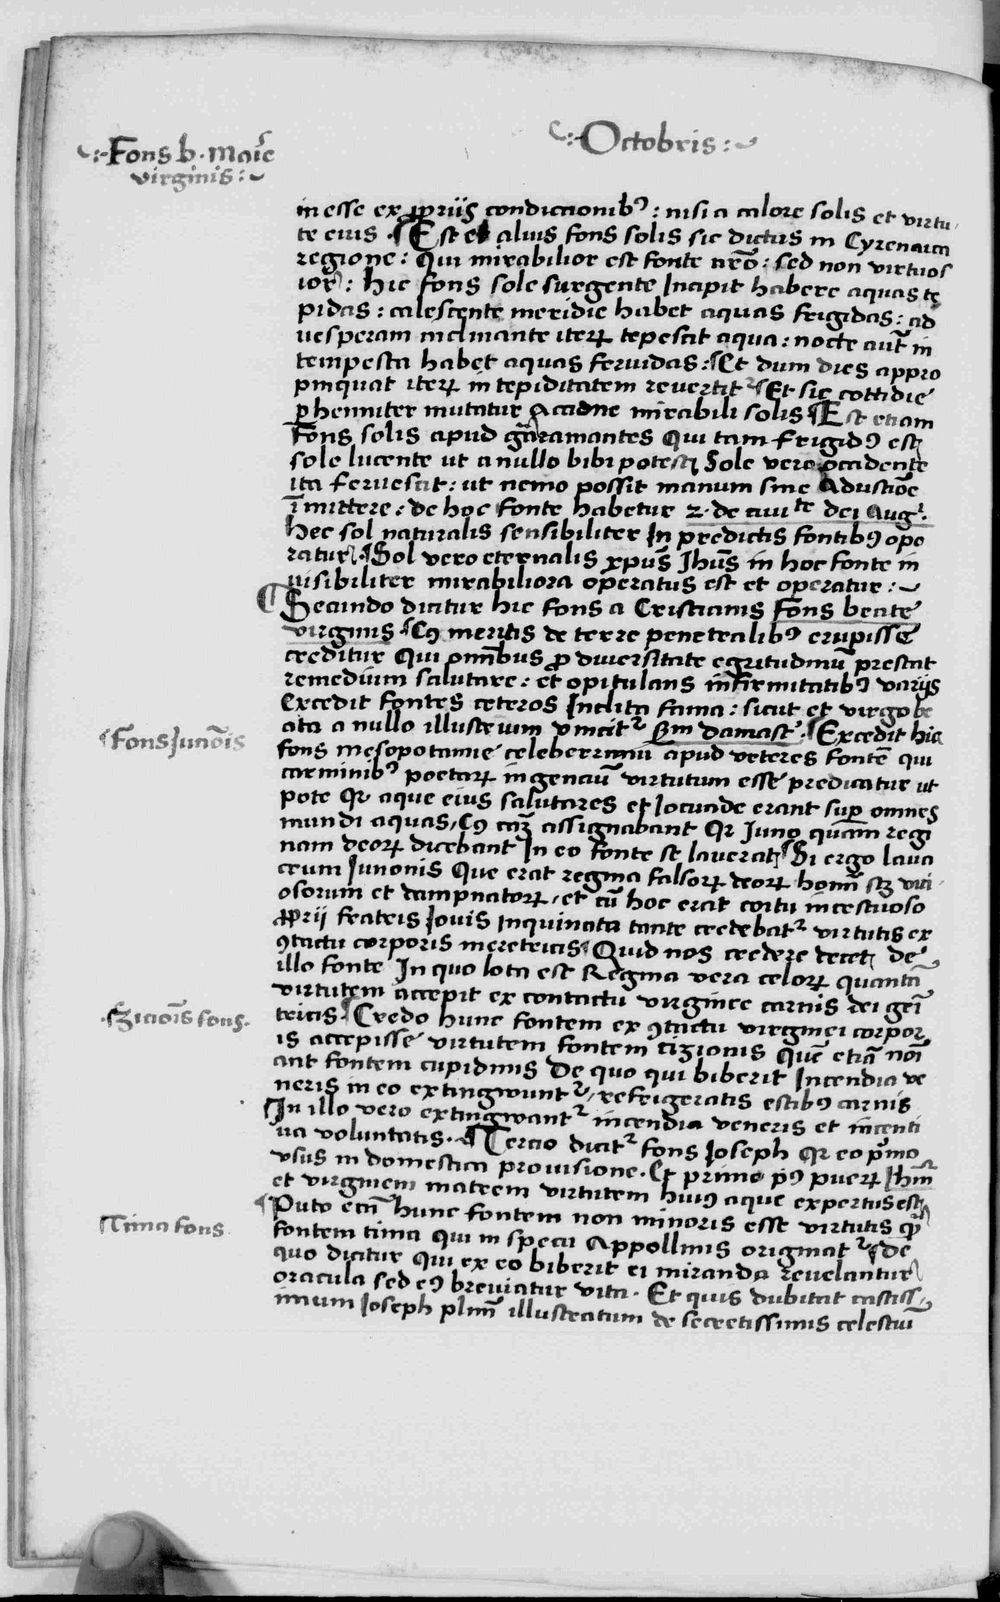 Octobris
Fons b. Marie
virginis
in esse ex propriis condicionibꝰ : nisi a calore solis et virtu
te eius . Est et alius fons solis sic dictus in Cyrenaica
regione : Qui mirabilior est fonte nr̄o : sed non virtuos
ior : Hic fons sole surgente Incipit habere aquas te
pidas : calescente meridie habet aquas frigidas : ad
uesperam inclinante iteꝝ tepescit aqua : nocte aut̄ in
tempesta habet aquas feruidas : Et dum dies appro
pinquat iteꝝ in tepiditatem revertit᷑ Et sic cottidie
ꝑhenniter mutatur Accione mirabili solis Est etiam
Fons solis apud garamantes Qui tam frigidꝰ est
sole lucente ut a nullo bibi potest Sole vero occidente
ita feruescit : ut nemo possit manum sine Adustiōe
īmittere : de hoc fonte habetur 2. de ciui^te dei Aug^i.
Hec sol naturalis sensibiliter In predictis fontibꝰ ope
ratur . Sol vero eternalis xp̄us Ihūs in hoc fonte in
uisibiliter mirabiliora operatus est et operatur :
Secundo dicitur hic fons a Cristianis Fons beate
virginis Cꝰ meritis de terre penetralibꝰ erupisse
creditur Qui omībus ꝓ diuersitate egritudinū prestat
remedium salutare : et opitulans infirmitatibꝰ variis
Excedit fontes ceteros Inclita fama : sicut et virgo be
ata a nullo illustrium vincit᷑ Sm̄ damasc̄ . Excedit hic
Fons Junōis
fons mesopotamie celeberrimū apud veteres fontē qui
carminibꝰ poetaꝝ ingenciū virtutum esse predicatur ut
pote Qꝛ aque eius salutares et Iocunde erant sup̄ omnes
mundi aquas, Cꝰ cāꝫ assignabant Qꝛ Juno quam regi
nam deoꝝ dicebant In eo fonte se lauerat Si ergo laua
crum Junonis Que erat regina falsoꝝ deoꝝ homī scꝫ vici
osorum et dampnatoꝝ , et cū hoc erat coitu incestuoso
ꝓprii fratris Iouis Inquinata tante credebat᷑ virtutis ex
ꝯtactu corporis meretricis Quid nos credere decet de
illo fonte In quo lota est Regina vera celoꝝ quantā
virtutem accepit ex contactu virginee carnis dei geni
tricis . Credo hunc fontem ex ꝯtactu virginei corpor
Ziciōis fons .
is accepisse virtutem fontem tizionis Quē etiā nōi
ant fontem cupidinis De quo qui biberit Incendia ve
neris in eo extingwunt᷑, refrigeratis estibꝰ carnis
In illo vero extingwant᷑ incendia veneris et incenti
ua voluntatis . Tercio dicit᷑ fons Ioseph Qꝛ eo pͦmo
vsus in domestica prouisione . Et primo pꝰ pueꝝ Ihm̄
et virginem matrem virtutem huiꝰ aque expertus est
Puto etīā hunc fontem non minoris esse virtutis q̄
Tima fons
fontem tima qui in specu Appollinis originat᷑ de
quo dicitur Qui ex eo biberit ei miranda reuelantur
oracula sed eꝰ breuiatur vita . Et quis dubitat castiss-
imum Ioseph plim̄ illustratum de secretissimis celestiū